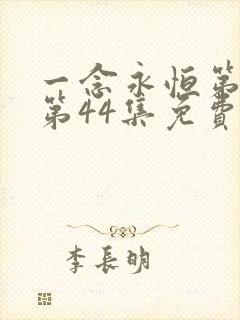 一念永恒第
第44集免費
李長明